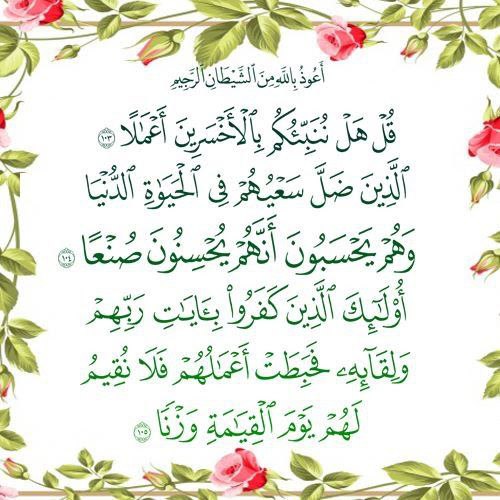 أَعُوذُ بِاللَّهِ مِنَ ٱلشَّيْطَانِ ٱلرَّجِيمِ
قُلْ هَلْ نُنَبِّئُكُم بِٱلْأَخْسَرِينَ أَعْمَٰلًا ١٠٣
ٱلَّذِينَ ضَلَّ سَعْيُهُمْ فِى ٱلْحَيَوٰةِ ٱلدُّنْيَا
وَهُمْ يَحْسَبُونَ أَنَّهُمْ يُحْسِنُونَ صُنْعًا ١٠٤
أُو۟لَٰٓئِكَ ٱلَّذِينَ كَفَرُوا۟ بِـَٔايَٰتِ رَبِّهِمْ
وَلِقَآئِهِۦ فَحَبِطَتْ أَعْمَٰلُهُمْ فَلَا نُقِيمُ
لَهُمْ يَوْمَ ٱلْقِيَٰمَةِ وَزْنًا ١٠٥